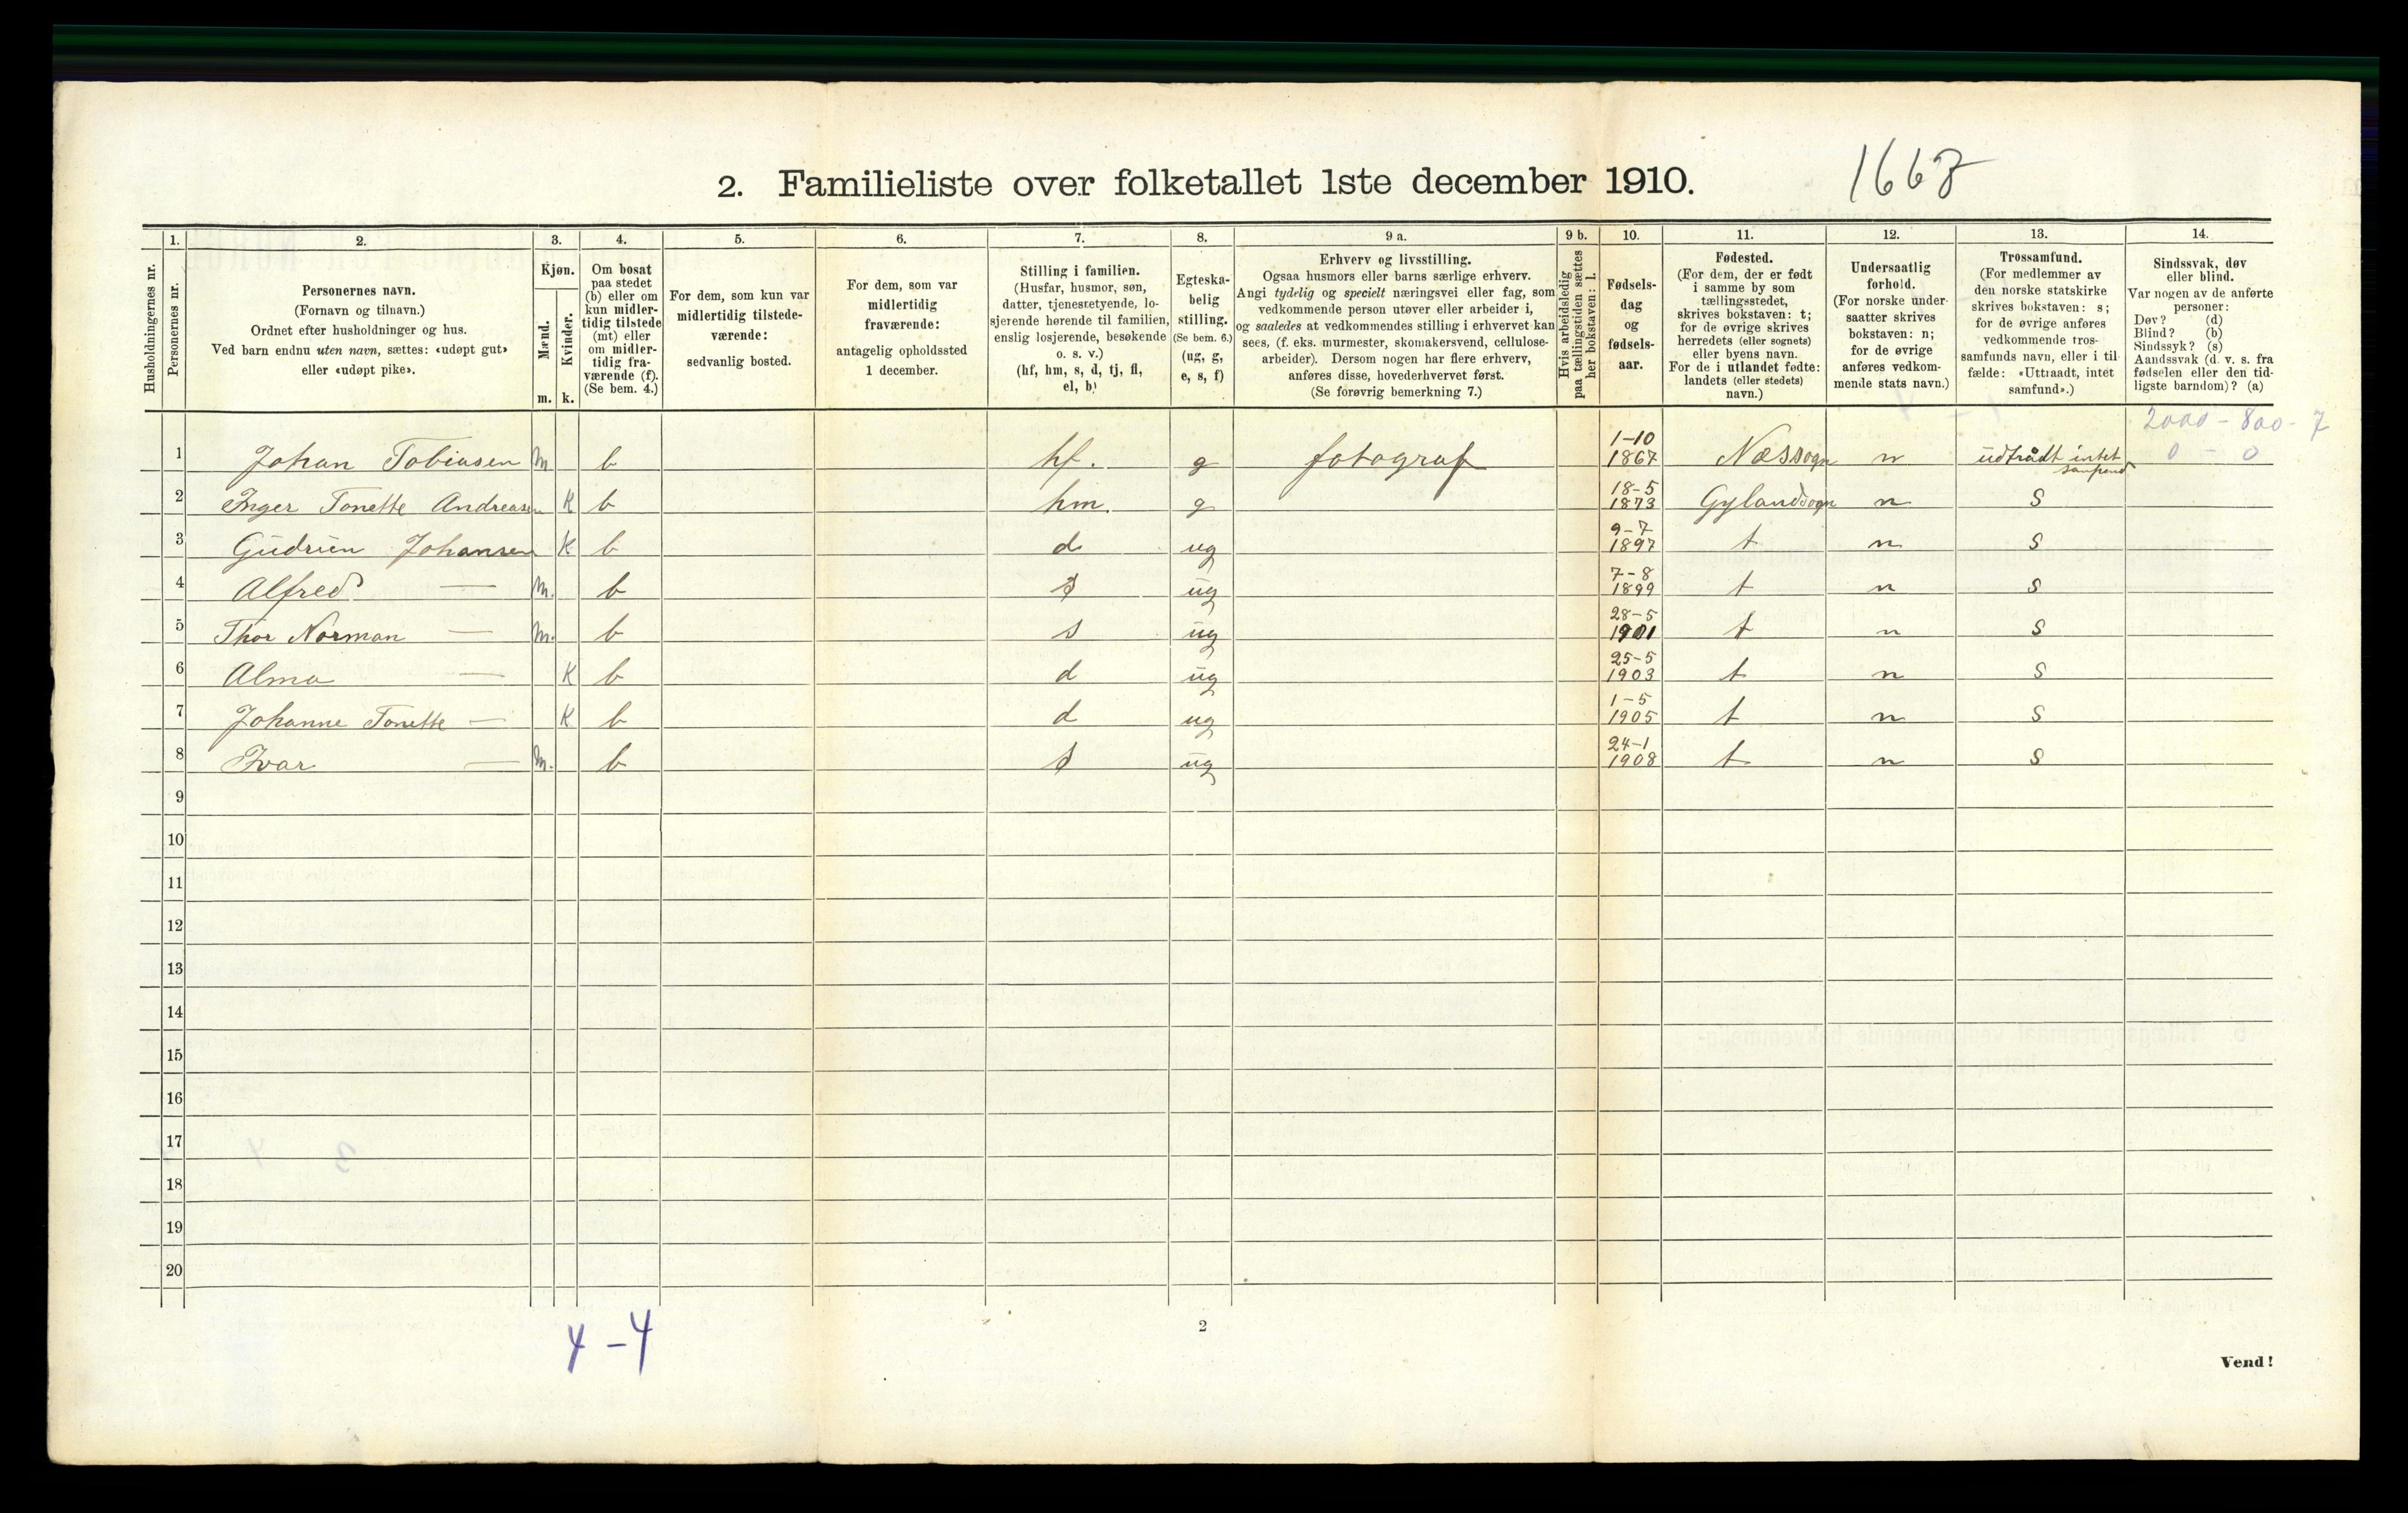 2. Familieliste over folketallet 1ste december 1910.
1668
Husholdningernes nr.
1.
Personernes nr.
2.
Personernes navn.
(Fornavn og tilnavn.)
Ordnet efter husholdninger og hus.
Ved barn endnu uten navn, sættes: «udøpt gut»
eller «udøpt pike».
3.
Kjøn.
Mænd.
Kvinder.
m. k.
4.
Om bosat
paa stedet
(b) eller om
kun midler-
tidig tilstede
(mt) eller
om midler-
tidig fra-
værende (f).
(Se bem. 4.)
5.
For dem, som kun var
midlertidig tilstede-
værende:
sedvanlig bosted.
6.
For dem, som var
midlertidig
fraværende:
antagelig opholdssted
1 december.
7.
Stilling i familien.
(Husfar, husmor, søn,
datter, tjenestetyende, lo-
sjerende hørende til familien,
enslig losjerende, besøkende
o. s. v.)
(hf, hm, s, d, tj, fl,
el, b)
8.
Egteska-
belig
stilling.
(Se bem. 6.)
(ug, g,
e, s, f)
9 a.
Erhverv og livsstilling.
Ogsaa husmors eller barns særlige erhverv.
Angi tydelig og specielt næringsvei eller fag, som
vedkommende person utøver eller arbeider i,
og saaledes at vedkommendes stilling i erhvervet kan
sees, (f. eks. murmester, skomakersvend, cellulose-
arbeider). Dersom nogen har flere erhverv,
anføres disse, hovederhvervet først.
(Se forøvrig bemerkning 7.)
9 b.
Hvis arbeidsledig
paa tællingstiden sættes
her bokstaven: l.
10.
Fødsels-
dag
og
fødsels-
aar.
11.
Fødested.
(For dem, der er født
i samme by som
tællingsstedet,
skrives bokstaven: t;
for de øvrige skrives
herredets (eller sognets)
eller byens navn.
For de i utlandet fødte:
landets (eller stedets)
navn.)
12.
Undersaatlig
forhold.
(For norske under-
saatter skrives
bokstaven: n;
for de øvrige
anføres vedkom-
mende stats navn.)
13.
Trossamfund.
(For medlemmer av
den norske statskirke
skrives bokstaven: s;
for de øvrige anføres
vedkommende tros-
samfunds navn, eller i til-
fælde: «Uttraadt, intet
samfund».)
14.
Sindssvak, døv
eller blind.
Var nogen av de anførte
personer:
Døv? (d)
Blind? (b)
Sindssyk? (s)
Aandssvak (d. v. s. fra
fødselen eller den tid-
ligste barndom)? (a)
2000 - 800 - 7
0 - 0
1 Johan Tobiasen m b hf. g fotograf 1-10 1867 Næssogn n udtrådt intet samfund
2 Inger Tonette Andreasen K b hm. g 18-5 1873 Gylandsogn n S
3 Gudrun Johansen K b d ug 9-7 1897 t n S
4 Alfred — m. b s ug 7-8 1899 t n S
5 Thor Norman — m. b s ug 28-5 1901 t n S
6 Alma — K b d ug 25-5 1903 t n S
7 Johanne Tonette — K b d ug 1-5 1905 t n S
8 Ivar — m. b s ug 24-1 1908 t n S
9
10
11
12
13
14
15
16
17
18
19
20
4 - 4
2
Vend!